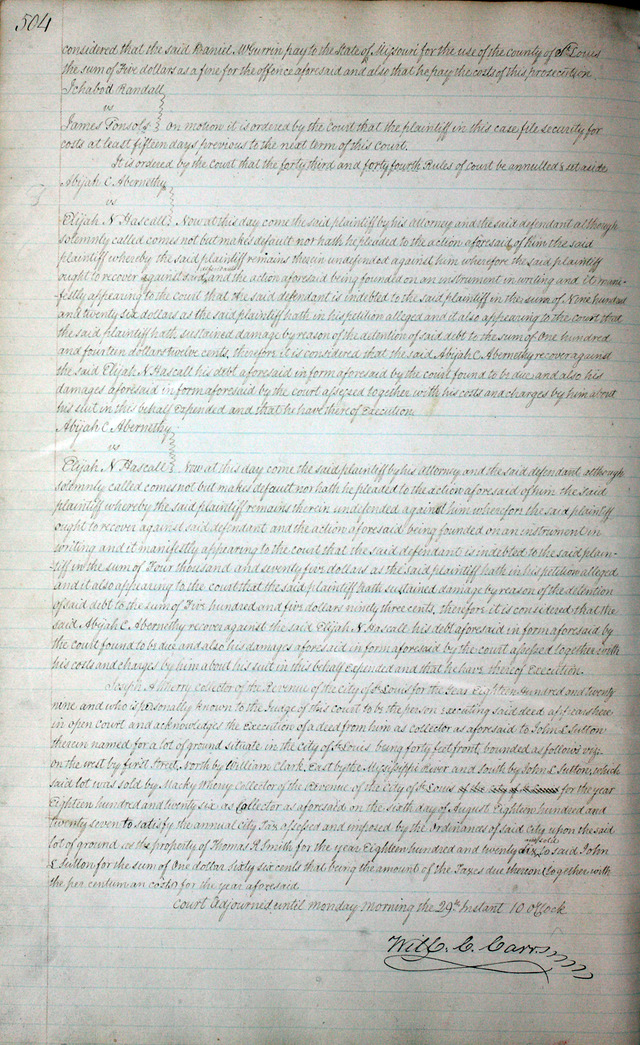 504
considered that the said Daniel McGurrin pay to the State of Missouri for the use of the county of St Louis
the sum of Five dollars as a fine for the offence aforesaid and also that he pay the costs of this prosecution
Ichabod Randall
vs
James Fonsols } on motion it is ordered by the Court that the plaintiff in this case file security for
costs at least fifteen days previous to the next term of this Court.
It is ordered by the court that the forty third and forty fourth Rules of Court be annulled & set aside
Abijah C Abernethy
vs
Elijah N Hascall } Now at this day come the said plaintiff by his attorney and the said defendant although
solemnly called comes not but makes default nor hath he pleaded to the action aforesaid of him the said
plaintiff whereby the said plaintiff remains therein undefended against him wherefore the said plaintiff
ought to recover against said defendant and the action aforesaid being founded on an instrument in writing and it mani-
festly appearing to the court that the said defendant is indebted to the said plaintiff in the sum of Nine hundred
and twenty six dollars as the said plaintiff hath in his petition alleged and it also appearing to the court that
the said plaintiff hath sustained damage by reason of the detention of said debt to the sum of One hundred
and fourteen dollars twelve cents, therefore it is considered that the said Abijah C Abernethy recover against
the said Elijah N Hascall his debt aforesaid in form aforesaid by the court found to be due and also his
damages aforesaid in form aforesaid by the court assessed together with his costs and charges by him about
his suit in this behalf Expended and that he have thereof Execution.
Abijah C Abernethy
vs
Elijah N Hascall } Now at this day come the said plaintiff by his attorney and the said defendant although
solemnly called comes not but makes default nor hath he pleaded to the action aforesaid of him the said
plaintiff whereby the said plaintiff remains therein undefended against him wherefore the said plaintiff
ought to recover against said defendant and the action aforesaid being founded on an instrument in
writing and it manifestly appearing to the court that the said defendant is indebted to the said plain-
tiff in the sum of Four thousand and seventy five dollars as the said plaintiff hath in his petition alleged
and it also appearing to the court that the said plaintiff hath sustained damage by reason of the detention
of said debt to the sum of Five hundred and five dollars ninety three cents, therefore it is considered that the
said Abijah C. Abernethy recover against the said Elijah N Hascall his debt aforesaid in form aforesaid by
the court found to be due and also his damages aforesaid in form aforesaid by the court assessed together with
his costs and charges by him about his suit in this behalf Expended and that he have thereof Execution.
Joseph A Wherry Collector of the Revenue of the City of St Louis for the Year Eighteen Hundred and twenty
nine and who is personally known to the Judge of this court to be the person Executing said deed appears here
in open Court and acknowledges the Execution of a deed from him as collector as aforesaid to John L Sutton
therein named for a lot of ground situate in the City of St Louis being forty feet front bounded as follows viz:
on the west by first Street, North by William Clark, East by the Mississippi River and South by John L Sutton, which
said lot was sold by Macky Wherry Collector of the Revenue of the City of St Louis for the year
Eighteen hundred and twenty six as Collector as aforesaid on the sixth day of August Eighteen hundred and
twenty seven to satisfy the annual City Tax assessed and imposed by the ordinances of said City upon the said
lot of ground as the property of Thomas R Smith for the year Eighteen hundred and twenty six to said John
L Sutton for the sum of One dollar Sixty six cents that being the amount of the Taxes due thereon (together with
the per centum an costs) for the year aforesaid
Court Adjourned until monday morning the 29th Instant 10 oClock
Will. C. Carr